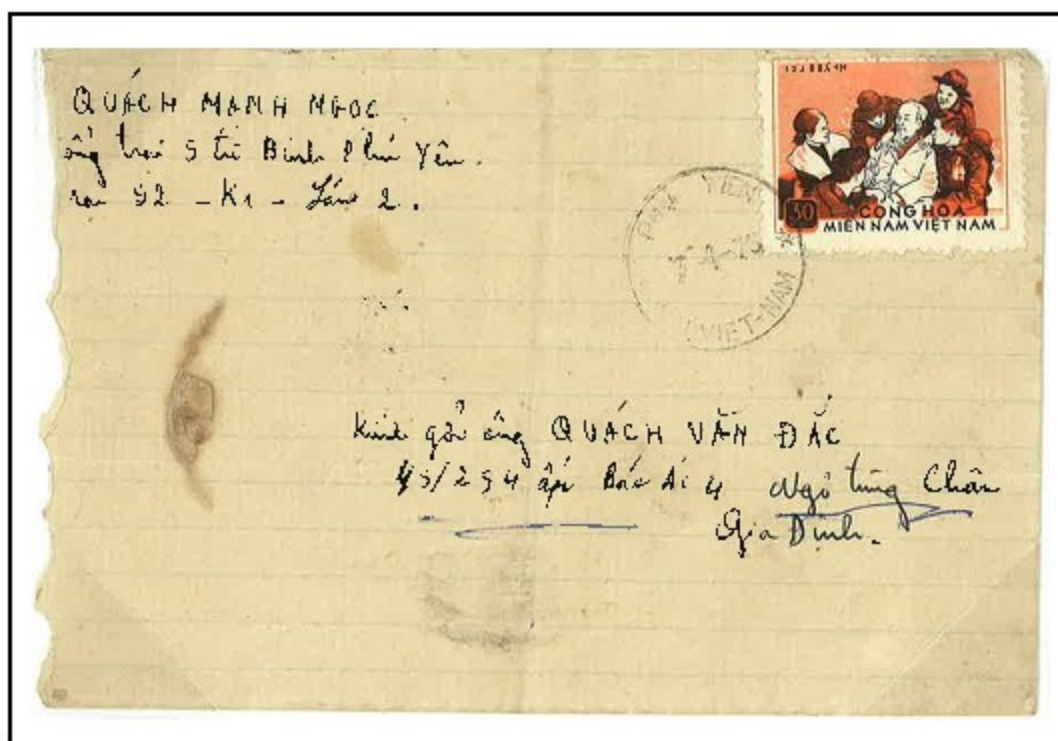 QUÁCH MẠNH NGỌC
trại 5 từ Bình Phú Yên.
52 - K1 - Lán 2.
30
CỘNG HÒA
MIỀN NAM VIỆT NAM
VIET-NAM
Kính gởi ông QUÁCH VĂN ĐẮC
45/254 ấp Bác Ái 4 Ngô tùng Châu
Gia Định.